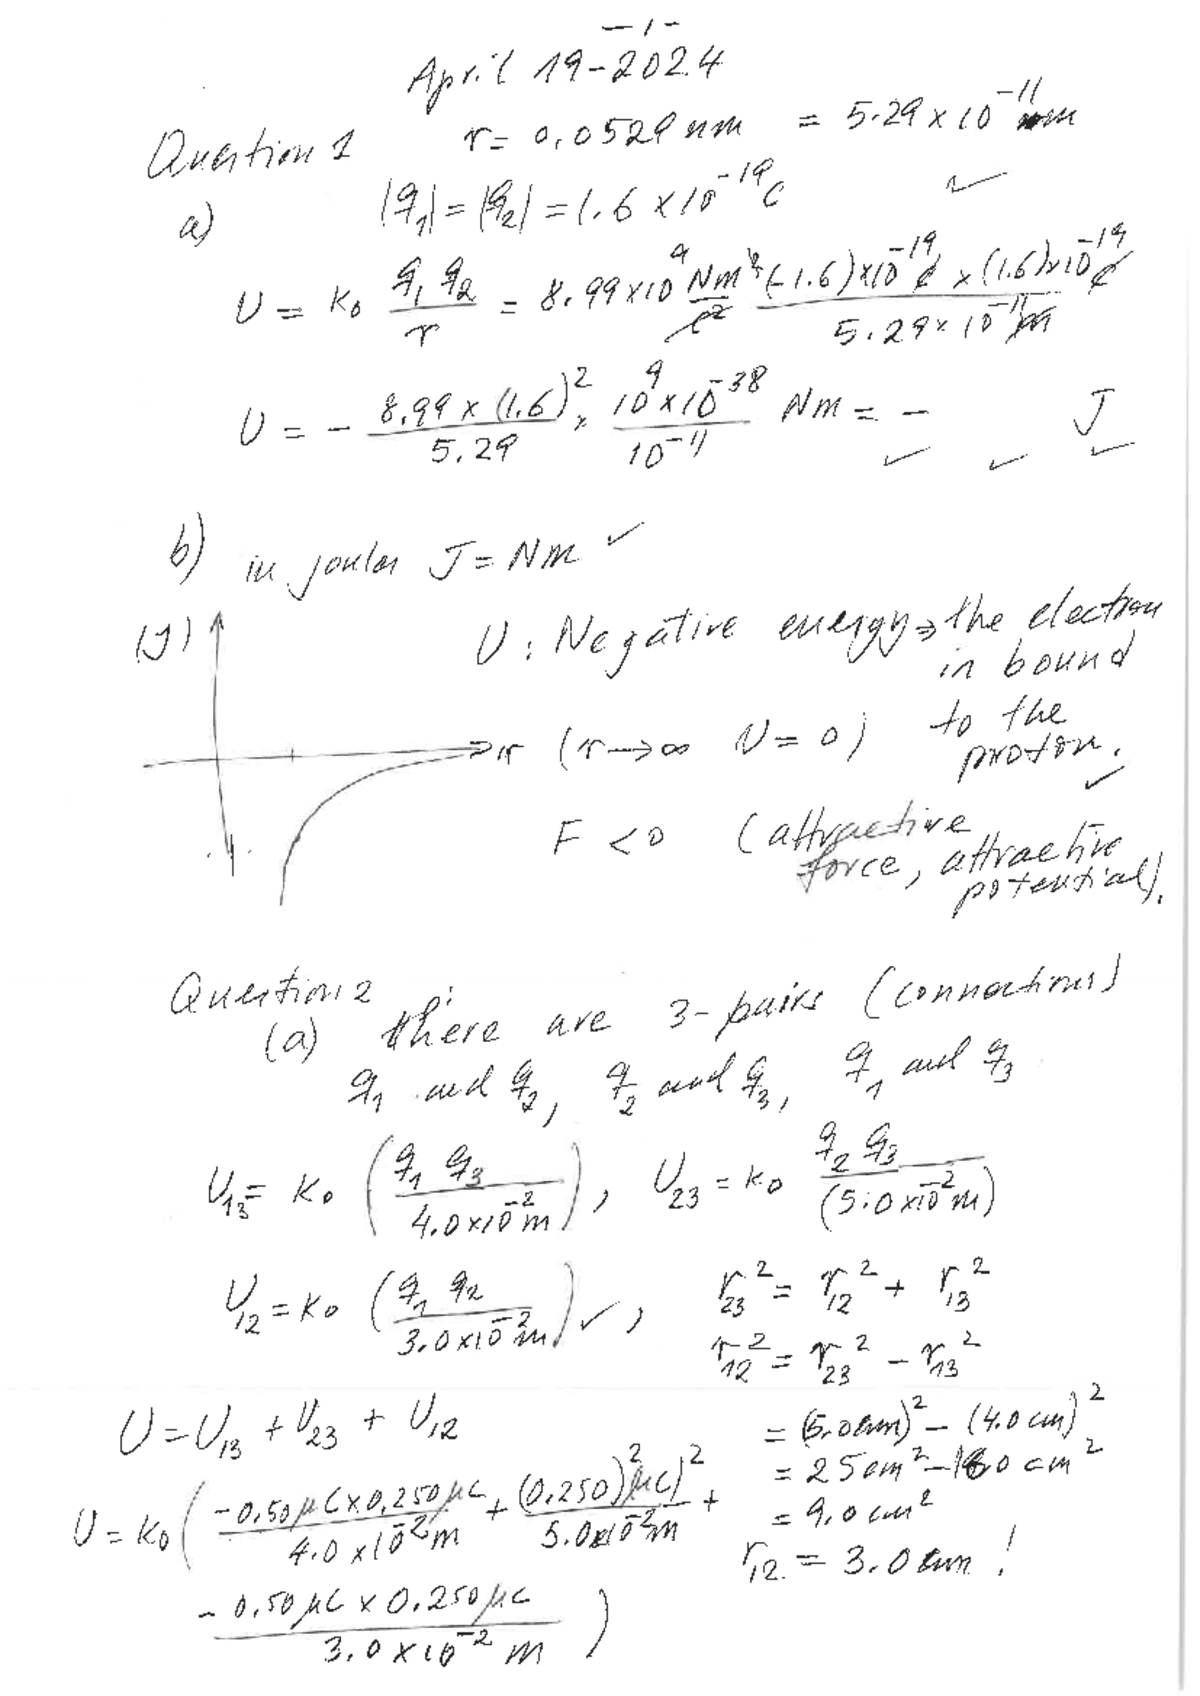 -1-
April 19-2024
Question 1 r = 0.0529 nm = 5.29 x 10^-11 m
a) |q1| = |q2| = 1.6 x 10^-19 C ✓
U = K0 q1 q2 / r = 8.99 x 10^9 Nm^2/C^2 (-1.6) x 10^-19 C x (1.6) x 10^-19 C / 5.29 x 10^-11 m
U = - 8.99 x (1.6)^2 / 5.29 x 10^9 x 10^-38 / 10^-11 Nm = - J
✓ ✓ ✓
b) in joules J = Nm ✓
(J) U: Negative energy ⇒ the electron
in bound
r (r → ∞ U = 0) to the
proton. ✓
F < 0 (attractive
force, attractive
potential).
Question 2
(a) there are 3-pairs (connections)
q1 and q2, q2 and q3, q1 and q3
U13 = K0 (q1 q3 / 4.0 x 10^-2 m), U23 = K0 q2 q3 / (5.0 x 10^-2 m)
U12 = K0 (q1 q2 / 3.0 x 10^-2 m) ✓, r23^2 = r12^2 + r13^2
r12^2 = r23^2 - r13^2
U = U13 + U23 + U12 = (5.0 cm)^2 - (4.0 cm)^2
= 25 cm^2 - 16.0 cm^2
U = K0 ( -0.50 μC x 0.250 μC / 4.0 x 10^-2 m + (0.250)^2 (μC)^2 / 5.0 x 10^-2 m +
= 9.0 cm^2
r12 = 3.0 cm !
- 0.50 μC x 0.250 μC / 3.0 x 10^-2 m )